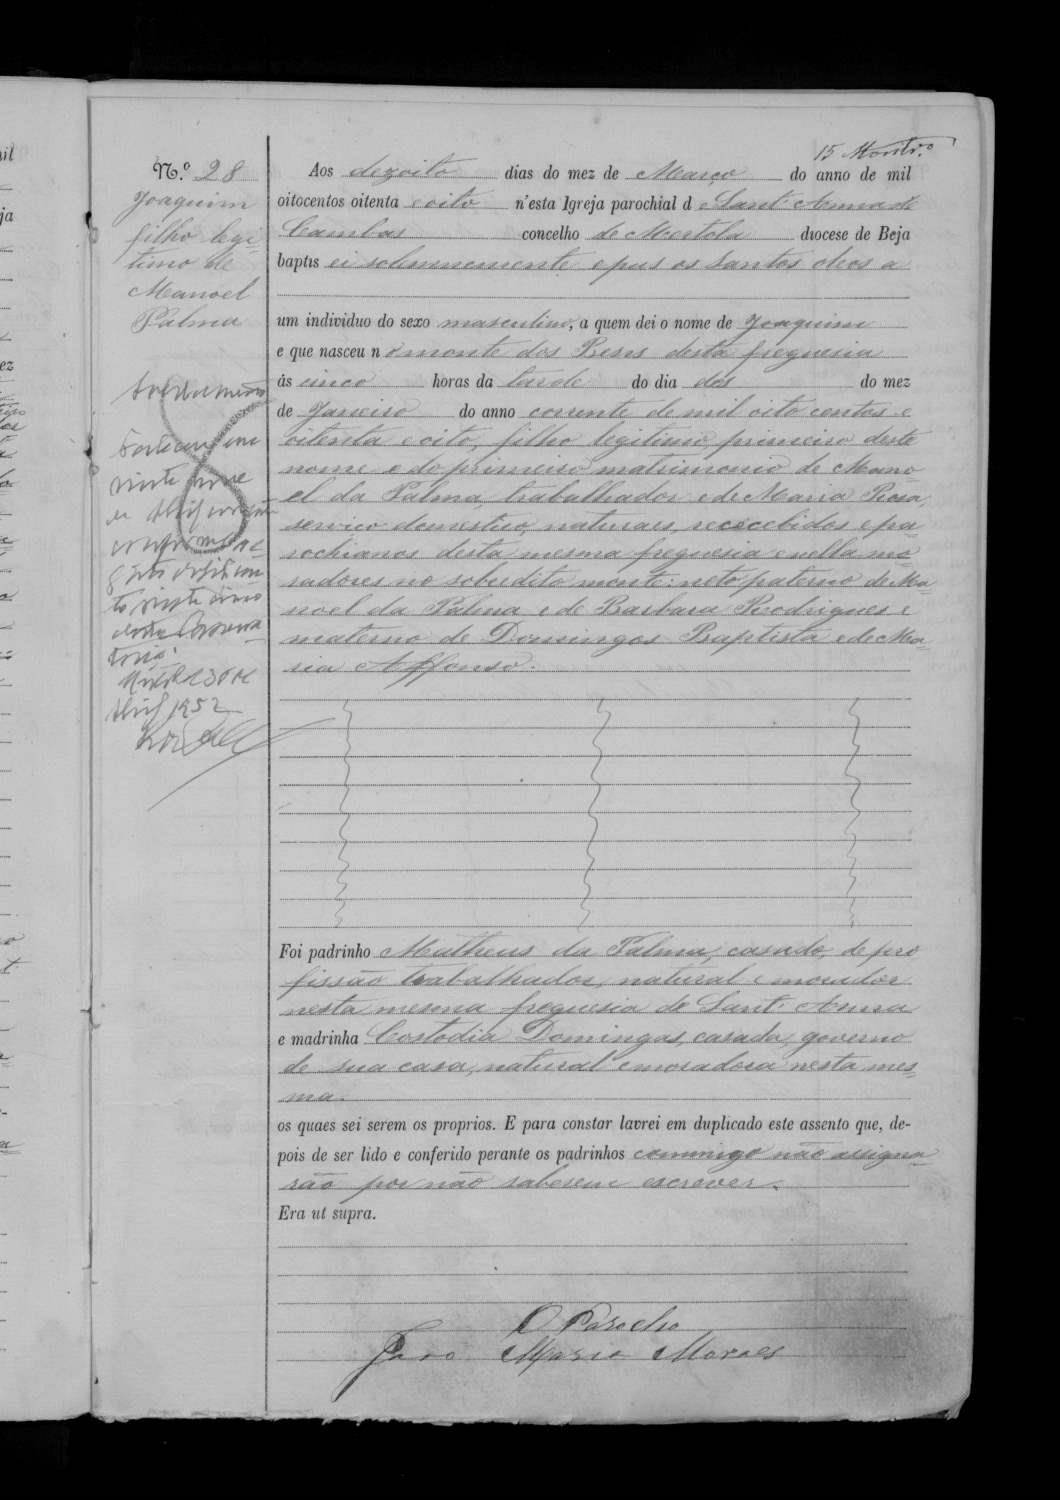 15
N.º 28
Joaquim
filho legi=
timo de
Manoel
Palma
Aos dezoito dias do mez de Março do anno de mil
oitocentos oitenta e oito n'esta Igreja parochial de Sant'Anna de
Cambas concelho de Mertola diocese de Beja
baptisei solemnemente e pus os Santos oleos a
um individuo do sexo masculino, a quem dei o nome de Joaquim
e que nasceu no monte dos Bens desta freguesia
ás cinco horas da tarde do dia dós do mez
de Janeiro do anno corrente de mil oito centos e
oitenta e oito, filho legitimo primeiro deste
nome e do primeiro matrimonio de Mano=
el da Palma, trabalhador e de Maria Roza,
serviço domestico, naturaes, rececebidos e pa=
rochianos desta mesma freguesia e nella mo=
radores no sobredito monte: neto paterno de Ma=
noel da Palma e de Barbara Rodrigues e
materno de Domingos Baptista e de Ma=
ria Affonso.
Sobrenome
vinte nove
de Abril
vinte cinco
30 de
Abril 1952
Foi padrinho Matheus da Palma, casado, de pro
fissão trabalhador, natural e morador
nesta mesma freguesia de Sant'Anna
e madrinha Costodia Domingas, casada, governo
de sua casa, natural e moradora nesta mes=
ma.
os quaes sei serem os proprios. E para constar lavrei em duplicado este assento que, de-
pois de ser lido e conferido perante os padrinhos comingo não assigna=
rão por não saberem escrever.
Era ut supra.
O Parocho
João Maria Moraes